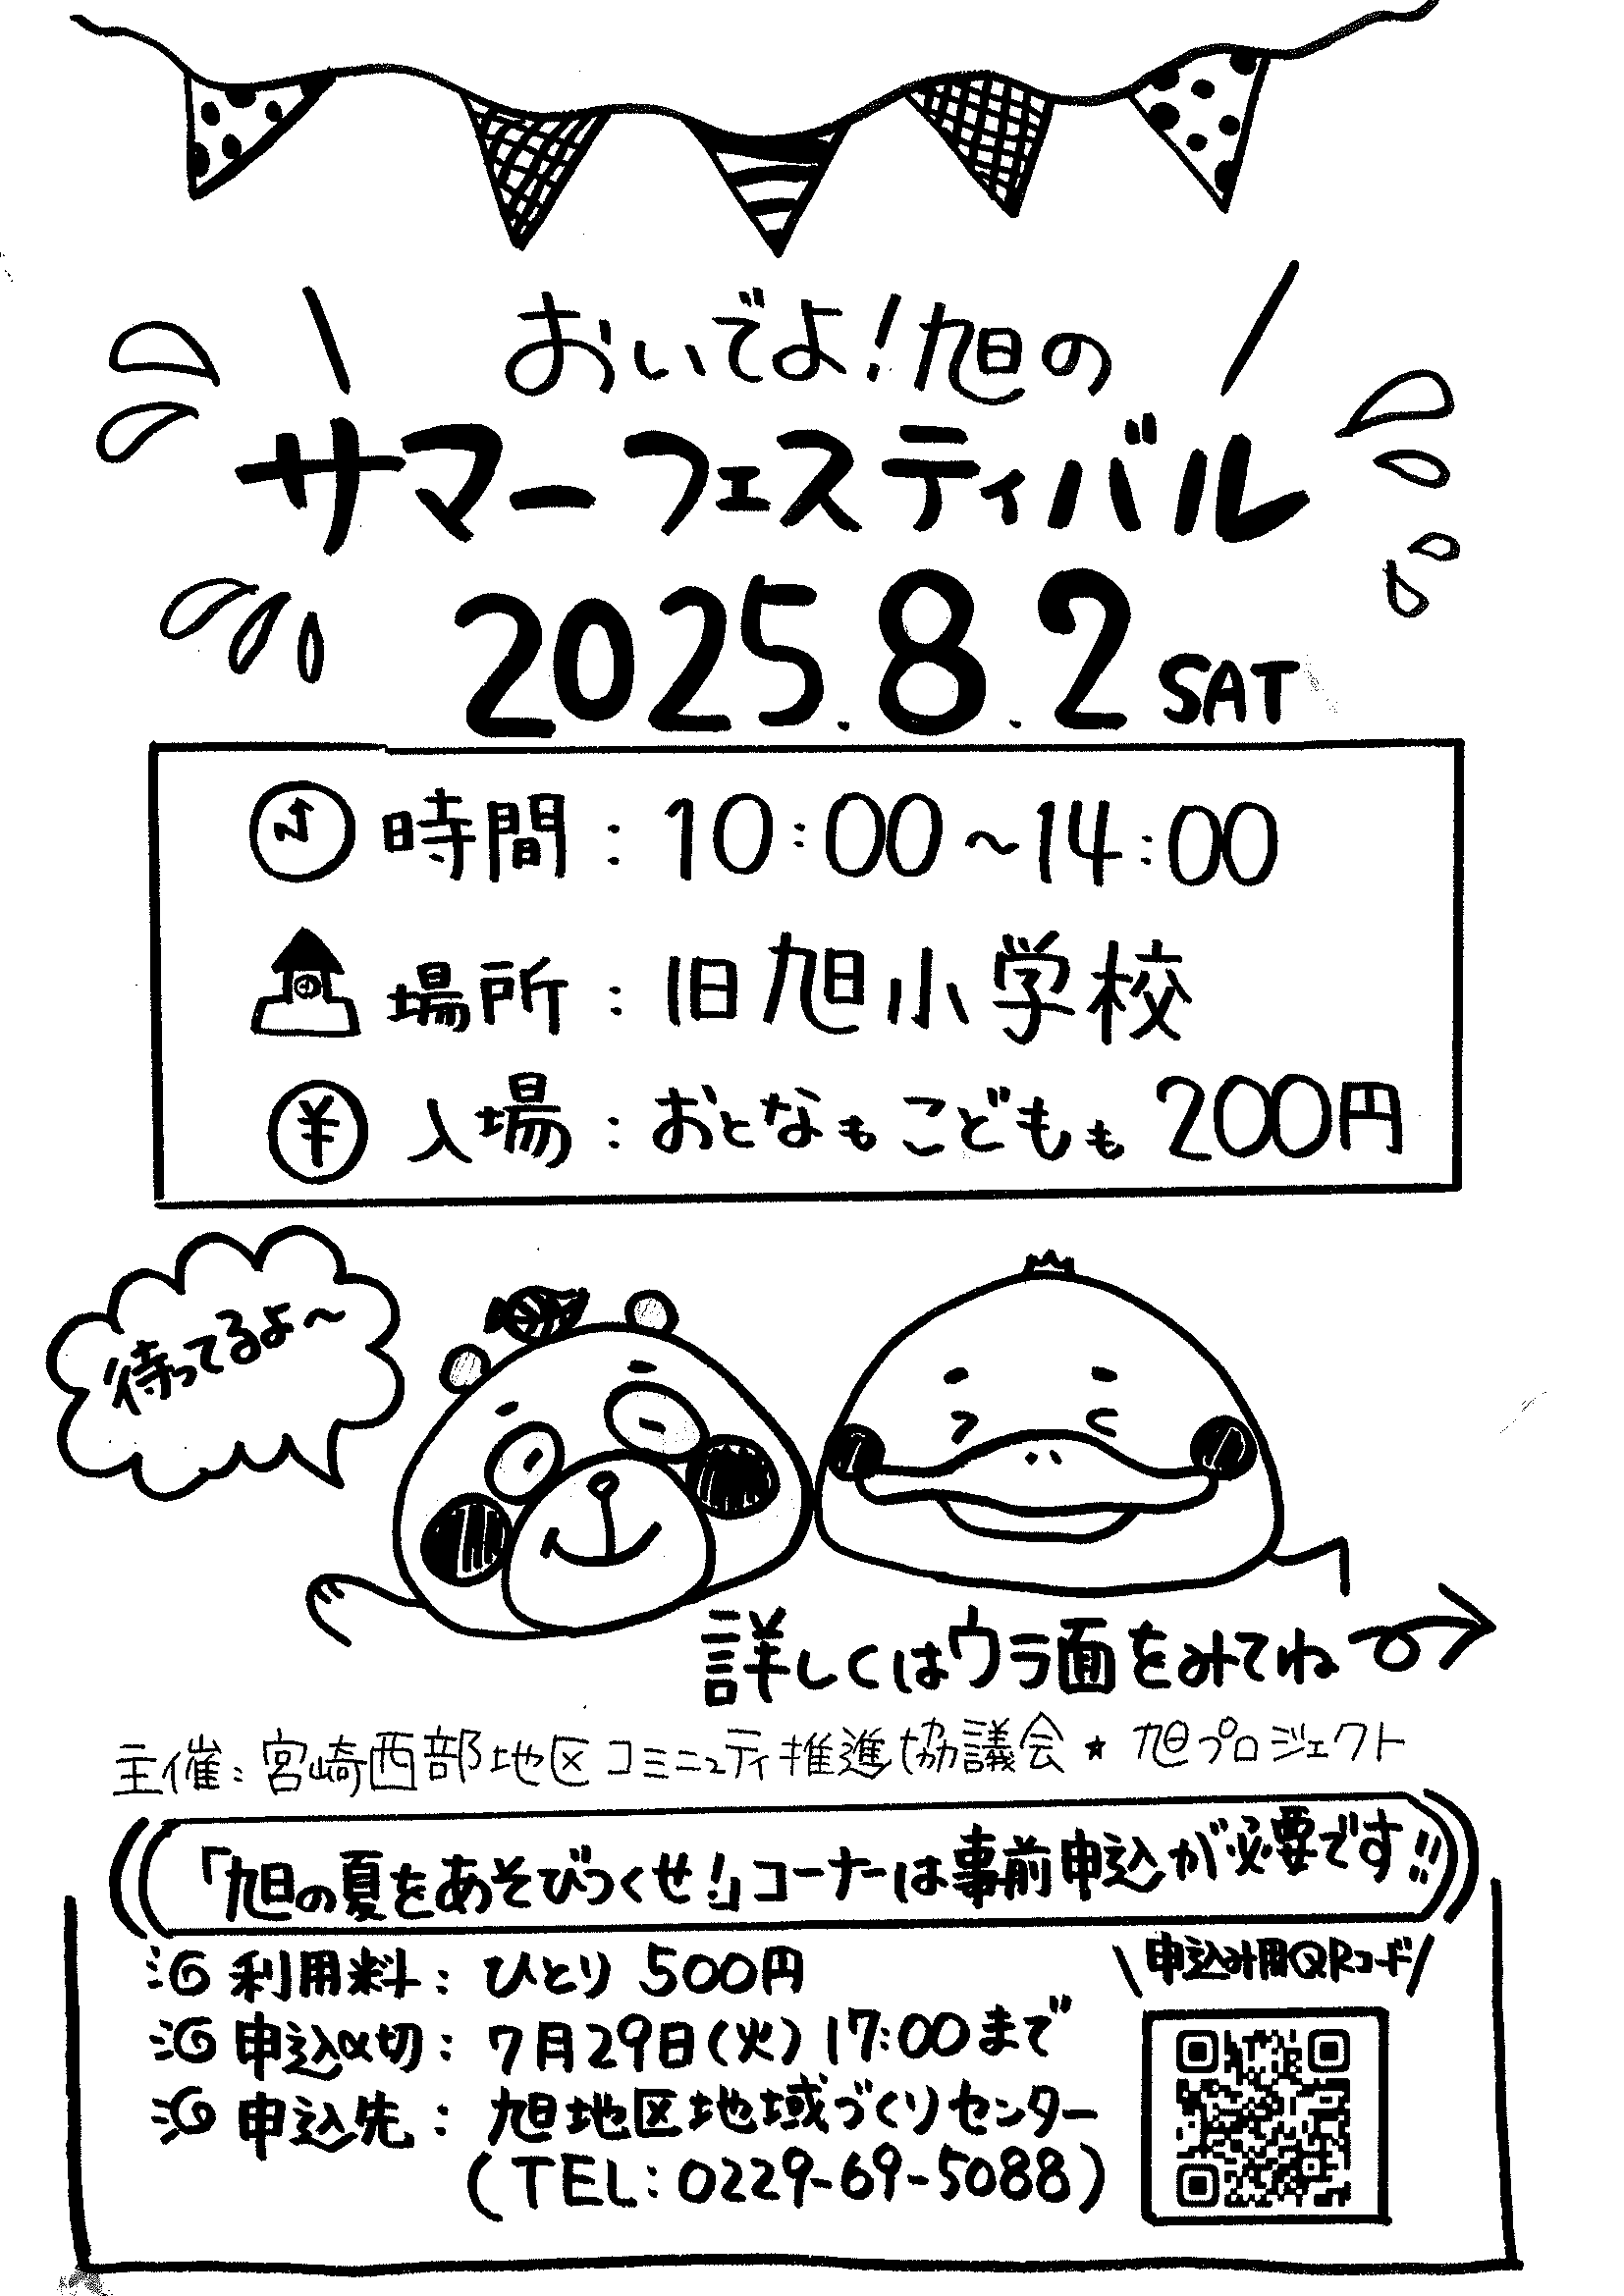 おいでよ!旭の
サマーフェスティバル
2025.8.2 SAT
時間:10:00〜14:00
場所:旧旭小学校
¥ 入場:おとなもこどもも200円
待ってるよ〜
詳しくはウラ面をみてね
主催:宮崎西部地区コミュニティ推進協議会★旭プロジェクト
「旭の夏をあそびつくせ!」コーナーは事前申込が必要です!!
利用料:ひとり500円
申込〆切:7月29日(火)17:00まで
申込先:旭地区地域づくりセンター
(TEL:0229-69-5088)
\申込み用QRコード/